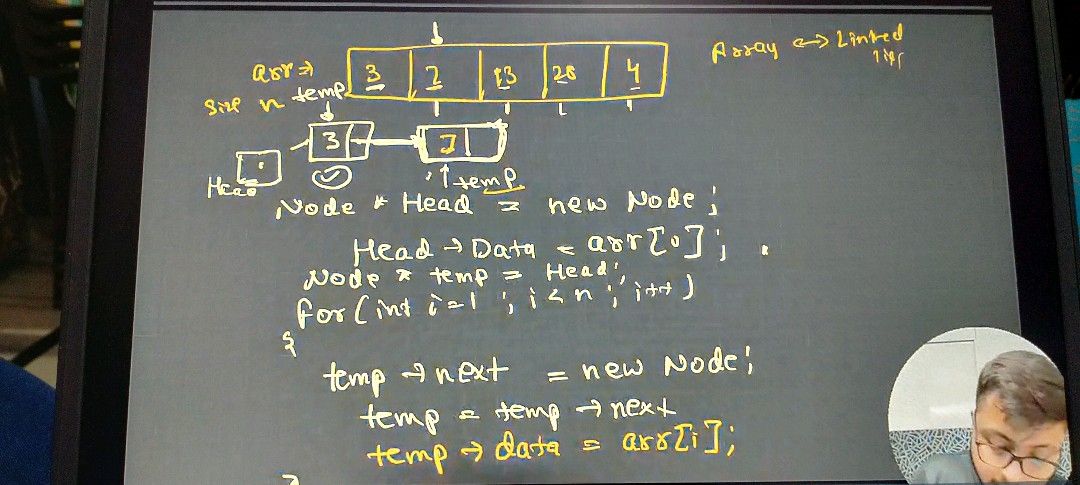 Array ↔ Linked list
arr ⇒ 3 2 13 20 4
Size n temp
3 2
Head
↑ temp
Node * Head = new Node;
Head → Data = arr[0];
Node * temp = Head;
for(int i=1; i<n; i++)
{
temp → next = new Node;
temp = temp → next
temp → data = arr[i];
}